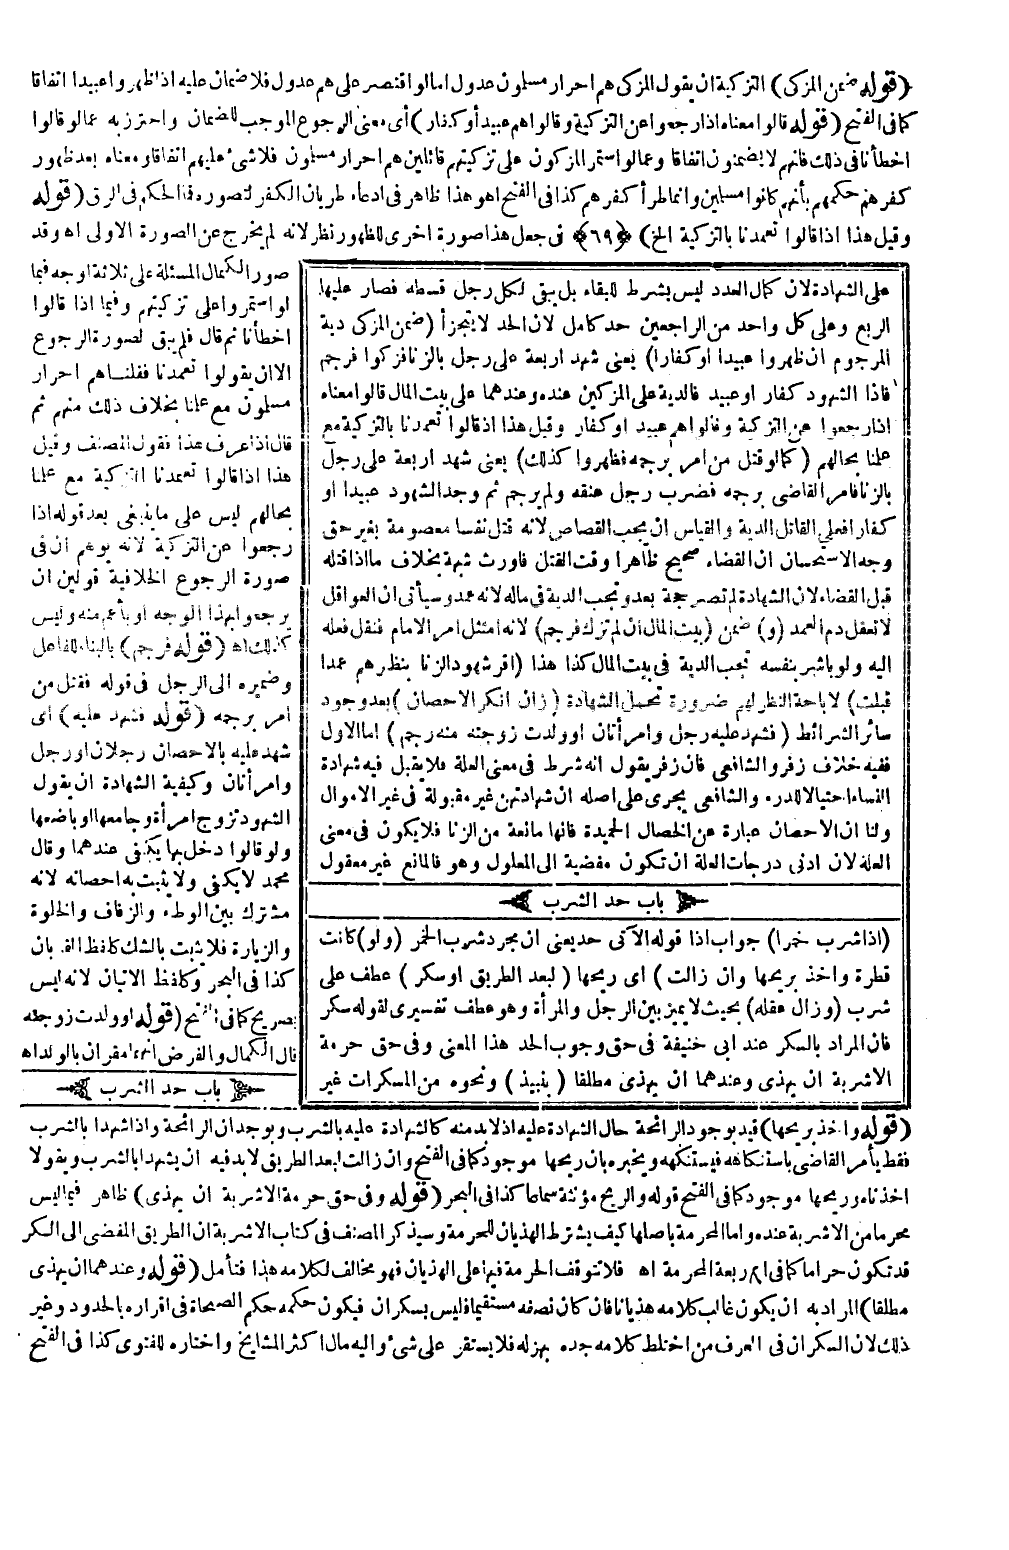 (قوله ضمن المزكى) التزكية ان يقول المزكى هم احرار مسلمون عدول امالو اقتصر على هم عدول فلا ضمان عليه اذا ظهروا عبيدا اتفاقا
كما فى الفتح (قوله قالوا معناه اذا رجعوا عن التزكية وقالوا هم عبيد أو كفار) أى معنى الرجوع الموجب للضمان واحترز به عما لو قالوا
اخطأنا فى ذلك فانهم لا يضمنون اتفاقا وعما لو استمر المزكون على تزكيتهم قائلين هم احرار مسلمون فلا شئ عليهم اتفاقا ومعناه بعد ظهور
كفرهم حكمهم بأنهم كانوا مسلمين وانما طرأ كفرهم كذا فى الفتح اهو هذا ظاهر فى ادعاء طريان الكفر لتصوره فما الحكم فى الرق (قوله
وقيل هذا اذا قالوا تعمدنا بالتزكية الخ) ﴿٦٩﴾ فى جعل هذا صورة اخرى للظهور نظر لانه لم يخرج عن الصورة الاولى اه وقد
على الشهادة لان كمال العدد ليس بشرط للبقاء بل يبقى لكل رجل قسطه فصار عليها
الربع وعلى كل واحد من الراجعين حد كامل لان الحد لا يتجزأ (ضمن المزكى دية
المرجوم ان ظهروا عبيدا او كفارا) يعنى شهد اربعة على رجل بالزنا فزكوا فرجم
فاذا الشهود كفار او عبيد فالدية على المزكين عنده وعندهما على بيت المال قالوا معناه
اذا رجعوا عن التزكية وقالوا هم عبيد او كفار وقيل هذا اذ قالوا تعمدنا بالتزكية مع
علمنا بحالهم (كما لو قتل من امر برجمه فظهروا كذلك) يعنى شهد اربعة على رجل
بالزنا فامر القاضى برجمه فضرب رجل عنقه ولم يرجم ثم وجد الشهود عبيدا او
كفارا فعلى القاتل الدية والقياس ان يجب القصاص لانه قتل نفسا معصومة بغير حق
وجه الاستحسان ان القضاء صحيح ظاهرا وقت القتل فاورث شبهة بخلاف ما اذا قتله
قبل القضاء لان الشهادة لم تصر حجة بعد وتجب الدية فى ماله لانه عمد وسيأتى ان العواقل
لا تعقل دم العمد (و) ضمن (بيت المال ان لم تزك فرجم) لانه امتثل امر الامام فنقل فعله
اليه ولو باشر بنفسه تجب الدية فى بيت المال كذا هذا (اقر شهود الزنا بنظرهم عمدا
قبلت) لا باحة النظر لهم ضرورة تحمل الشهادة (زان انكر الاحصان) بعد وجود
سائر الشرائط (فشهد عليه رجل وامرأتان او ولدت زوجته منه رجم) اما الاول
ففيه خلاف زفر والشافعى فان زفر يقول انه شرط فى معنى العلة فلا يقبل فيه شهادة
النساء احتيالا للدرء والشافعى يجرى على اصله ان شهادتهن غير مقبولة فى غير الاموال
ولنا ان الاحصان عبارة عن الخصال الحميدة فانها مانعة من الزنا فلا يكون فى معنى
العلة لان ادنى درجات العلة ان تكون مفضية الى المعلول وهو فالمانع غير معقول
باب حد الشرب
(اذا شرب خمرا) جواب اذا قوله الآتى حد يعنى ان مجرد شرب الخمر (ولو) كانت
قطرة واخذ بريحها وان زالت) اى ريحها (لبعد الطريق او سكر) عطف على
شرب (وزال عقله) بحيث لا يميز بين الرجل والمرأة وهو عطف تفسيرى لقوله سكر
فان المراد بالسكر عند ابى حنيفة فى حق وجوب الحد هذا المعنى وفى حق حرمة
الاشربة ان يهذى وعندهما ان يهذى مطلقا (بنبيذ) ونحوه من المسكرات غير
صور الكمال المسئلة على ثلاثة اوجه فيما
لو استمروا على تزكيتهم وفيما اذا قالوا
اخطأنا ثم قال فلم يبق لصورة الرجوع
الا ان يقولوا تعمدنا فقلنا هم احرار
مسلمون مع علمنا بخلاف ذلك منهم ثم
قال اذا عرف هذا فقول المصنف وقيل
هذا اذا قالوا تعمدنا التزكية مع علمنا
بحالهم ليس على ما ينبغى بعد قوله اذا
رجعوا عن التزكية لانه يوهم ان فى
صورة الرجوع الخلافية قولين ان
يرجعوا بهذا الوجه او بأعم منه وليس
كذلك اه (قوله فرجم) بالبناء للفاعل
وضميره الى الرجل فى قوله فقتل من
امر برجمه (قوله فشهد عليه) اى
شهد عليه بالاحصان رجلان او رجل
وامرأتان وكيفية الشهادة ان يقول
الشهود تزوج امرأة وجامعها او باضعها
ولو قالوا دخل بها يكفى عندهما وقال
محمد لا يكفى ولا يثبت به احصانه لانه
مشترك بين الوطء والزفاف والخلوة
والزيارة فلا يثبت بالشك كلفظ القربان
كذا فى البحر وكلفظ الاتيان لانه ليس
بصريح كما فى الفتح (قوله او ولدت زوجته
قال الكمال والفرض انهما مقران بالولد اه
باب حد الشرب
(قوله واخذ بريحها) قيد بوجود الرائحة حال الشهادة عليه اذ لا بد منه كالشهادة عليه بالشرب وبوجدان الرائحة واذا شهدا بالشرب
فقط يأمر القاضى باستنكاهه فيستنكهه ويخبره بان ريحها موجود كما فى الفتح وان زالت لبعد الطريق لا بد فيه ان يشهدا بالشرب ويقولا
اخذناه وريحها موجود كما فى الفتح قوله والريح مؤنثة سماعا كذا فى البحر (قوله وفى حق حرمة الاشربة ان يهذى) ظاهر فيما ليس
محرما من الاشربة عنده واما المحرمة باصلها كيف يشترط الهذيان للحرمة وسيذكر المصنف فى كتاب الاشربة ان الطريق المفضى الى السكر
قد تكون حراما كما فى اربعة المحرمة اه فلا تتوقف الحرمة فيها على الهذيان فهو مخالف لكلامه هذا فتأمل (قوله وعندهما ان يهذى
مطلقا) المراد به ان يكون غالب كلامه هذيانا فان كان نصفه مستقيما فليس بسكران فيكون حكمه حكم الصحاة فى اقراره بالحدود وغير
ذلك لان السكران فى العرف من اختلط كلامه جده بهزله فلا يستقر على شئ واليه مال اكثر المشايخ واختاره للفتوى كذا فى الفتح